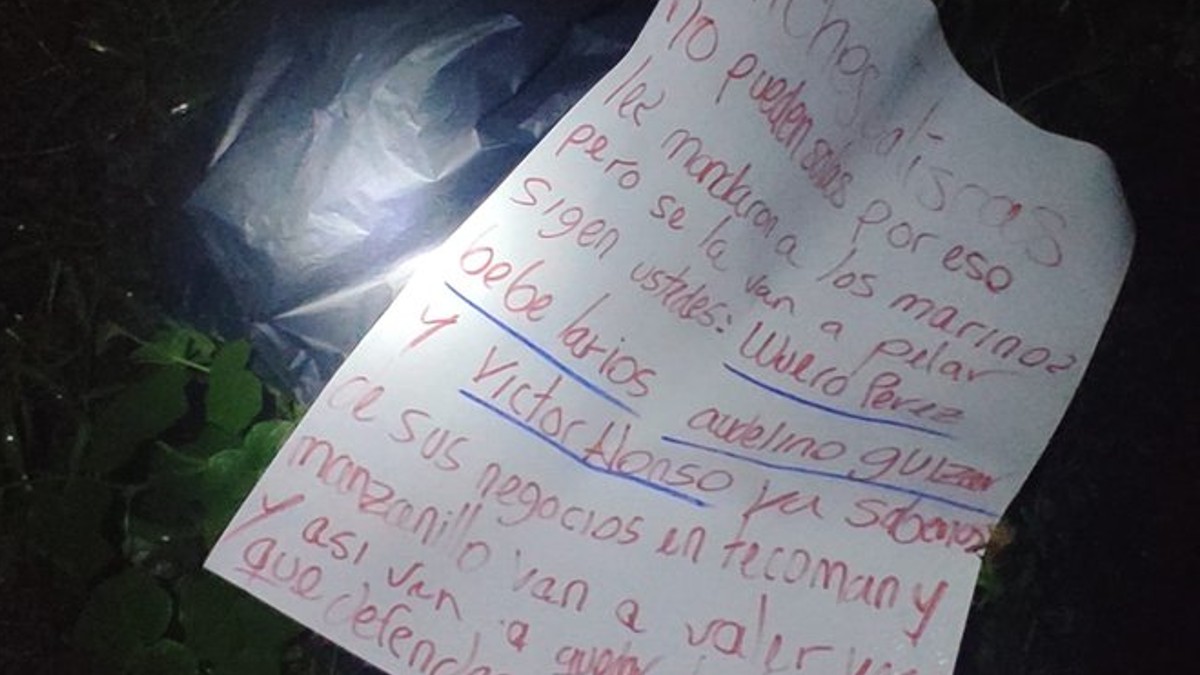 no pueden solos por eso
les mandaron a los marinos
pero se la van a pelar
sigen ustedes: Wuero Perez
bebe larios audelino guizar
y victor Alonso ya sabemos
de sus negocios en tecoman y
manzanillo van a valer
y asi van a
que defend